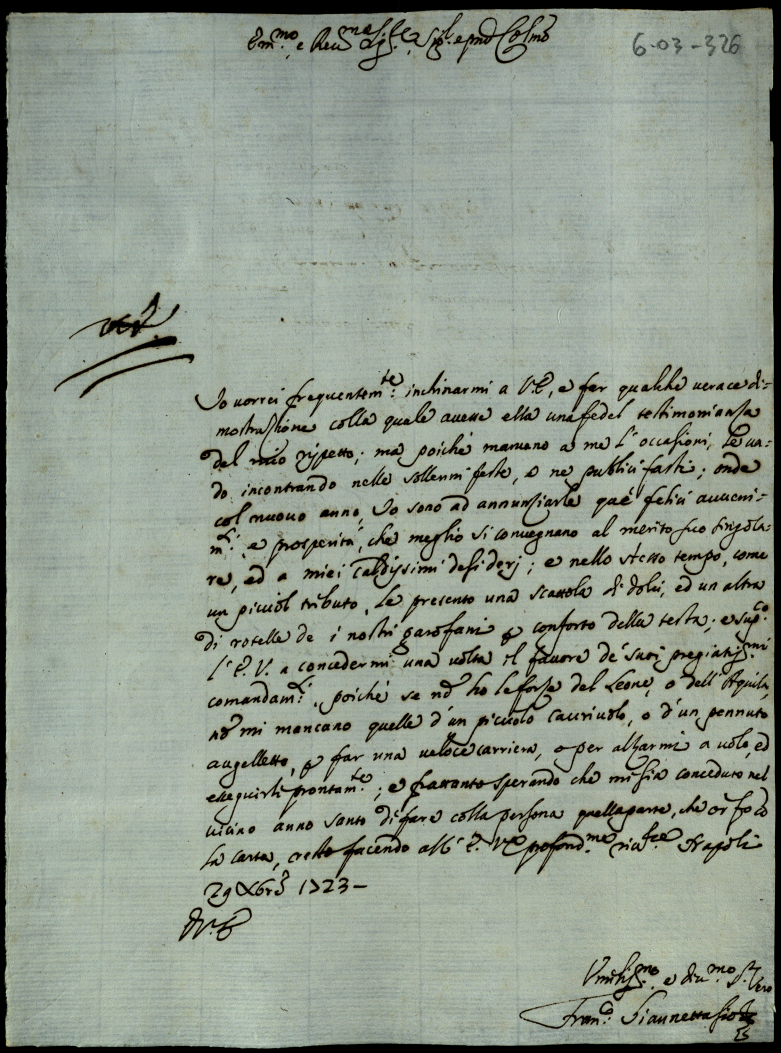 Em.mo, e Rev.mo Sig.re Sig.r e pnē Col.mo
6-03-326
Io vorrei frequentem.te inchinarmi a V.E., e far qualche verace di-
mostrazione colla quale avesse ella una fedel testimonianza
del mio rispetto; ma poiche mancano a me l'occasioni, le va-
do incontrando nelle sollenni feste, e ne publici fasti; onde
col nuovo anno, Io sono ad annunziarle que' felici avveni-
m.ti, e prosperità, che meglio si convegnano al merito suo singola-
re, ed a miei caldissimi desiderj; e nello stesso tempo, come
un picciol tributo, le presento una scattola di dolci, ed un altra
di rotelle de i nostri garofani p conforto della testa; e sup.co
l'E.V. a concedermi una volta il favore de' suoi pregiatis.mi
comandam.ti, poiche se nō ho le forze del Leone, o dell'Aquila,
nō mi mancano quelle d'un picciolo cavriuolo, o d'un pennuto
augelletto, p far una veloce carriera, o per alzarmi a volo, ed
esseguirli prontam.te; e frattanto sperando che mi sia conceduto nel
vicino anno santo di fare colla persona quella parte, che or fo cō
la carta, resto facendo all'E. V.ra profond.ma riv.za Napoli
29 Xbrē 1723 –
D V.E.
Umilis.mo e div.mo S.r vero
Fran.co Giannettasio